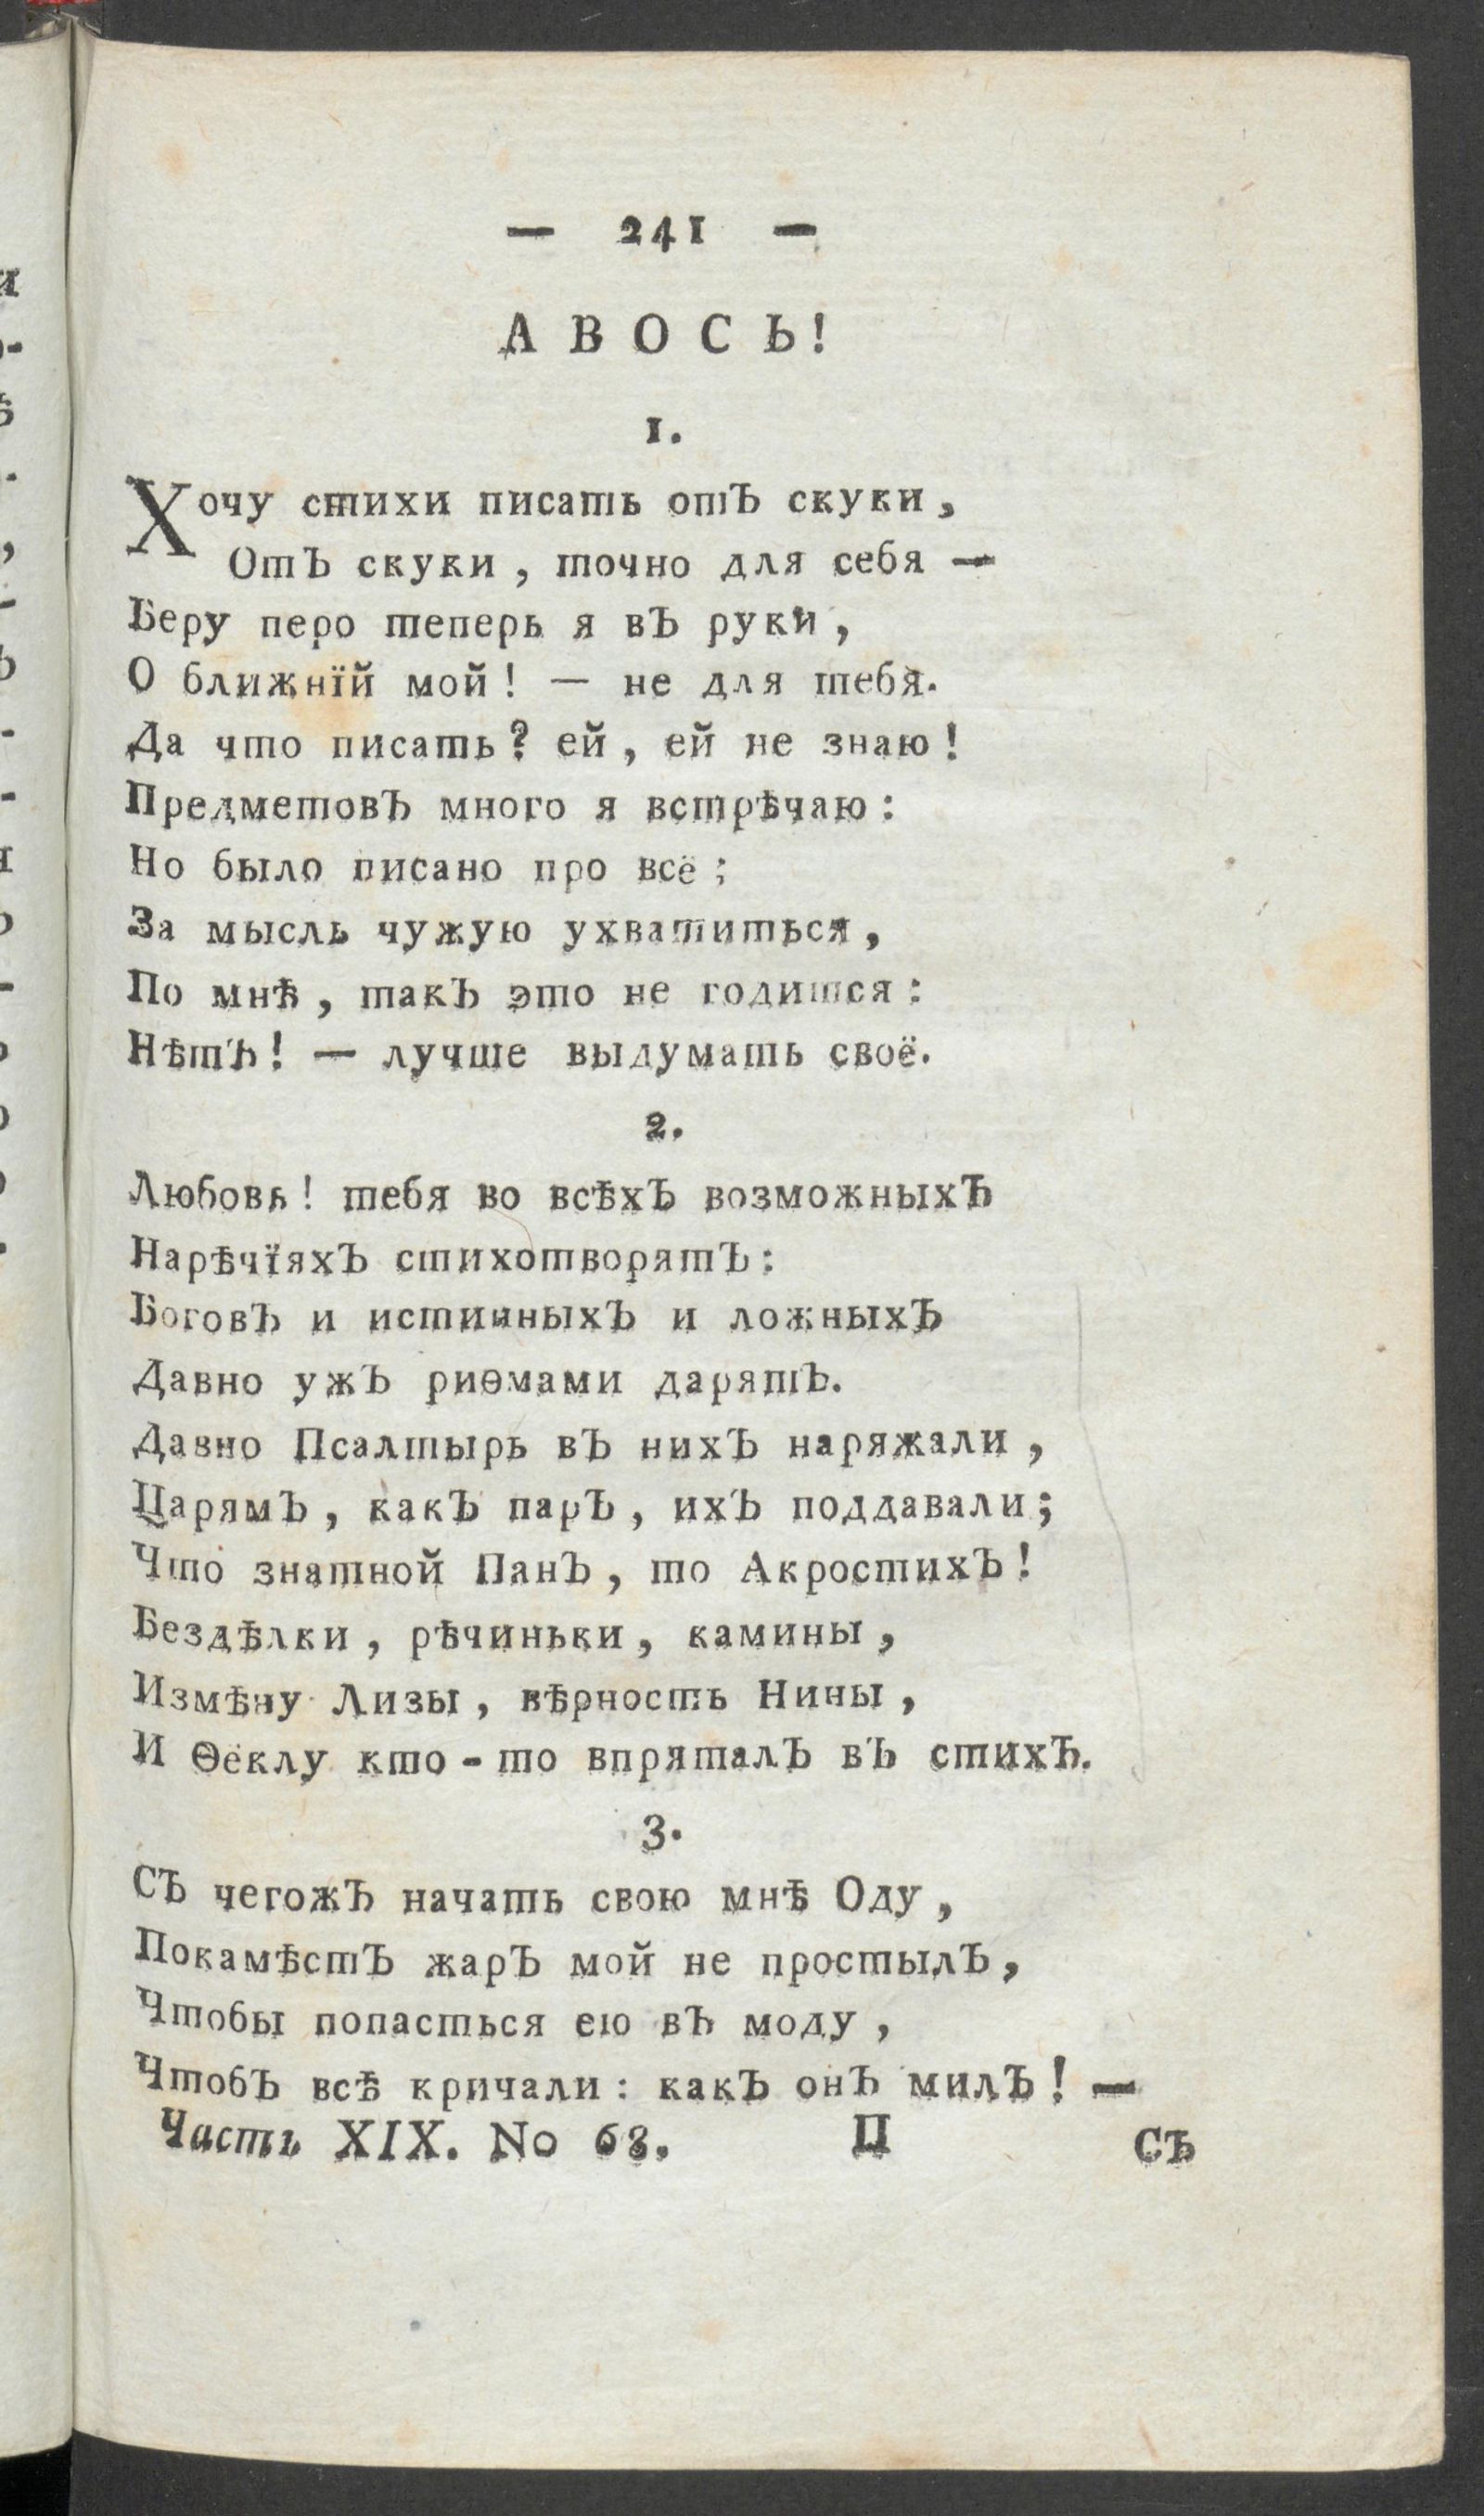 — 241 —
АВОСЬ!
1.
Хочу стихи писать отЪ скуки,
ОтЪ скуки, точно для себя —
Беру перо теперь я вЪ руки,
О ближнїй мой! — не для тебя.
Да что писать? ей, ей не знаю!
ПредметовЪ много я встрѣчаю:
Но было писано про всё;
За мысль чужую ухватиться,
По мнѣ, такЪ это не годится:
НѣтЪ! — лучше выдумать своё.
2.
Любовь! тебя во всѣхЪ возможныхЪ
НарѣчїяхЪ стихотворятЪ:
БоговЪ и истинныхЪ и ложныхЪ
Давно ужЪ риѳмами дарятЪ.
Давно Псалтырь вЪ нихЪ наряжали,
ЦарямЪ, какЪ парЪ, ихЪ поддавали;
Что знатной ПанЪ, то АкростихЪ!
Бездѣлки, рѣчиньки, камины,
Измѣну Лизы, вѣрность Нины,
И Ѳёклу кто-то впряталЪ вЪ стихЪ.
3.
СЪ чегожЪ начать свою мнѣ Оду,
ПокамѣстЪ жарЪ мой не простылЪ,
Чтобы попасться ею вЪ моду,
ЧтобЪ всѣ кричали: какЪ онЪ милЪ! —
Часть XIX. No 68. П СЪ